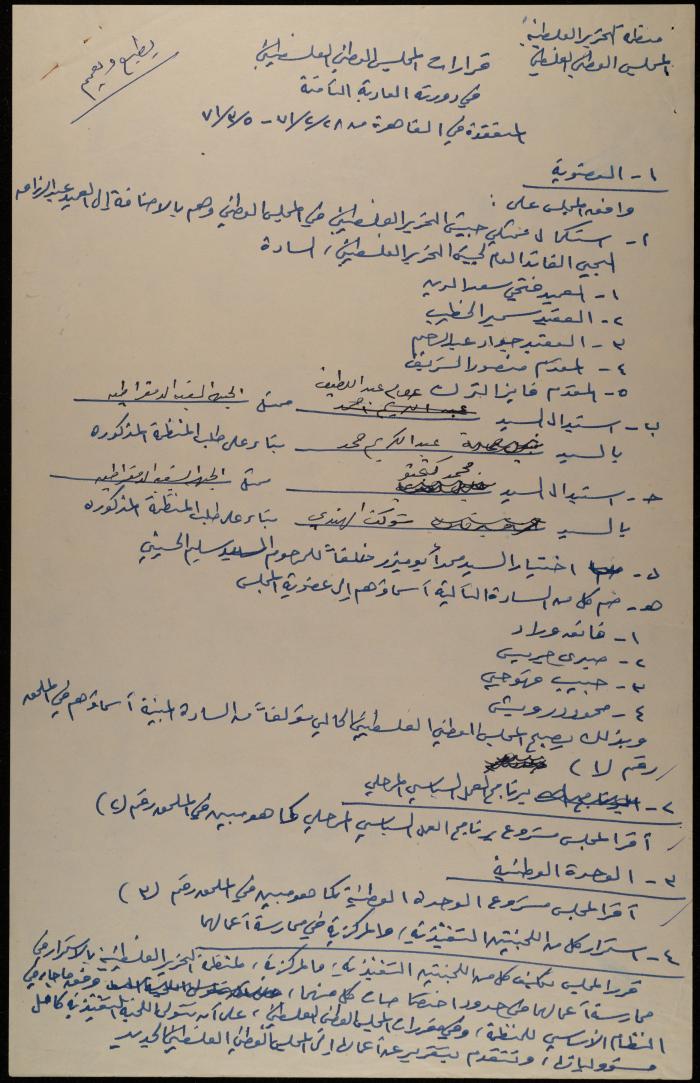 منظمة التحرير الفلسطينية
المجلس الوطني الفلسطيني
يطبع ويعمم
قرارات المجلس الوطني الفلسطيني
في دورته العادية الثامنة
المنعقدة في القاهرة من ٧١/٢/٢٨ - ٧١/٣/٥
١- العضوية
وافق المجلس على :
أ- استكمال ممثلي جيش التحرير الفلسطيني في المجلس الوطني وهم بالاضافة إلى العميد عبد الرزاق
اليحيى القائد العام لجيش التحرير الفلسطيني، السادة
١- العميد فتحي سعد الدين
٢- العقيد سمير الخطيب
٣- العقيد جواد عبد الرحيم
٤- المقدم منصور الشريف
٥- المقدم فايز الترك
ب- استبدال السيد عصام عبد اللطيف ممثل الجبهة الشعبية الديمقراطية
بالسيد عبد الكريم حمد بناء على طلب المنظمة المذكورة
ج- استبدال السيد محمد ممثل الجبهة الشعبية الديمقراطية
بالسيد شوكت الهندي بناء على طلب المنظمة المذكورة
د- اختيار السيد محمد أبو ميزر خلفاً للمرحوم سليم الحسيني
هـ- ضم كل من السادة التالية أسماؤهم إلى عضوية المجلس
١- فائق وراد
٢- صبري جريس
٣- حبيب قهوجي
٤- محمود درويش
وبذلك يصبح المجلس الوطني الفلسطيني الحالي مؤلفاً من السادة المبينة أسماؤهم في الملحق
رقم (١)
٢- برنامج العمل السياسي المرحلي
أقر المجلس مشروع برنامج العمل السياسي المرحلي كما هو مبين في الملحق رقم (٢)
٣- الوحدة الوطنية
أقر المجلس مشروع الوحدة الوطنية كما هو مبين في الملحق رقم (٣)
٤- استمرار كل من اللجنتين التنفيذية، والمركزية في ممارسة أعمالها
قرر المجلس تكليف كل من اللجنتين التنفيذية، والمركزية، لمنظمة التحرير الفلسطينية بالاستمرار في
ممارسة أعمالها في حدود اختصاصات كل منهما، وفق ما جاء في
النظام الأساسي للمنظمة، وفي مقررات المجلس الوطني الفلسطيني، على أن تتولى اللجنة التنفيذية كامل
مسؤولياتها، وتتقدم بتقرير عن أعمالها إلى المجلس الوطني الفلسطيني الجديد